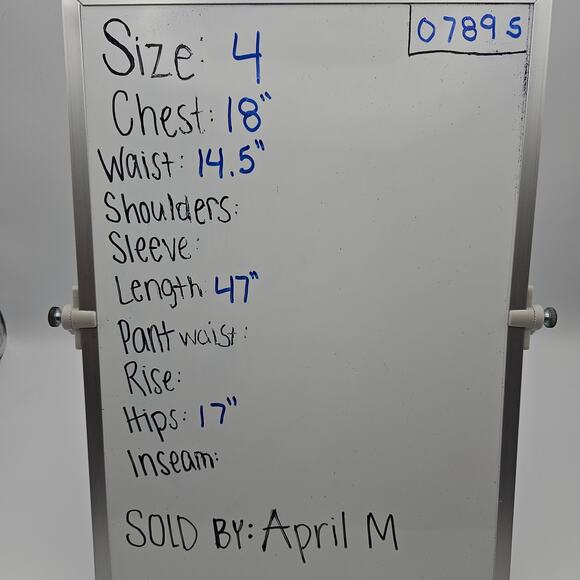 07895
Size: 4
Chest: 18"
Waist: 14.5"
Shoulders:
Sleeve:
Length: 47"
Pant waist:
Rise:
Hips: 17"
Inseam:
SOLD BY: April M